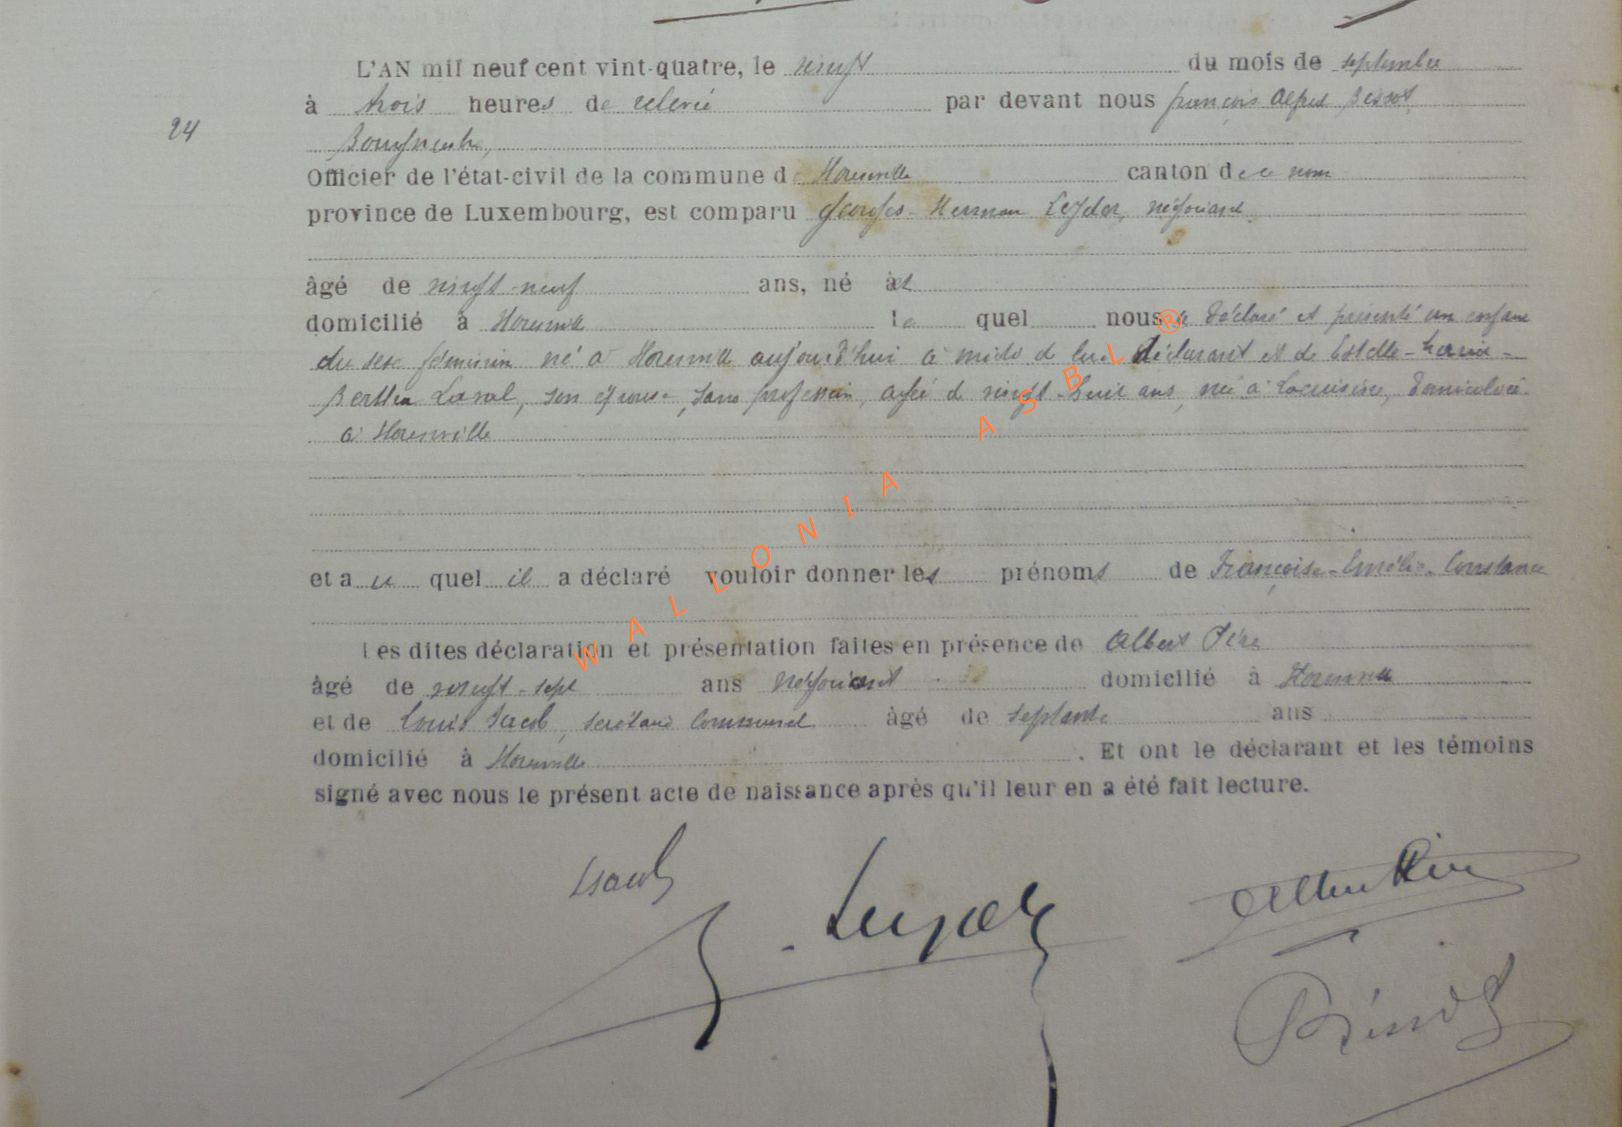 L'AN mil neuf cent vint-quatre, le vingt du mois de septembre
à trois heures de relevée par devant nous françois Alfred
24
Bourgmestre,
Officier de l'état-civil de la commune de Florenville canton de ce nom
province de Luxembourg, est comparu Georges-Herman négociant
âgé de vingt-neuf ans, né à et
domicilié à Florenville le quel nous a déclaré et présenté un enfant
du sexe féminin né à Florenville aujourd'hui à midi de lui déclarant et de Estelle-Maria-
Bertha Laval, son épouse, sans profession, agée de vingt-huit ans, née à Lacuisine, domiciliée
à Florenville
et a u quel il a déclaré vouloir donner les prénoms de Françoise-Emélie-Constance
Les dites déclaration et présentation faites en présence de Albert
âgé de vingt-sept ans négociant domicilié à Florenville
et de Louis Jacob, secrétaire Communal âgé de septante ans
domicilié à Florenville . Et ont le déclarant et les témoins
signé avec nous le présent acte de naissance après qu'il leur en a été fait lecture.
WALLONIA ASBL ®